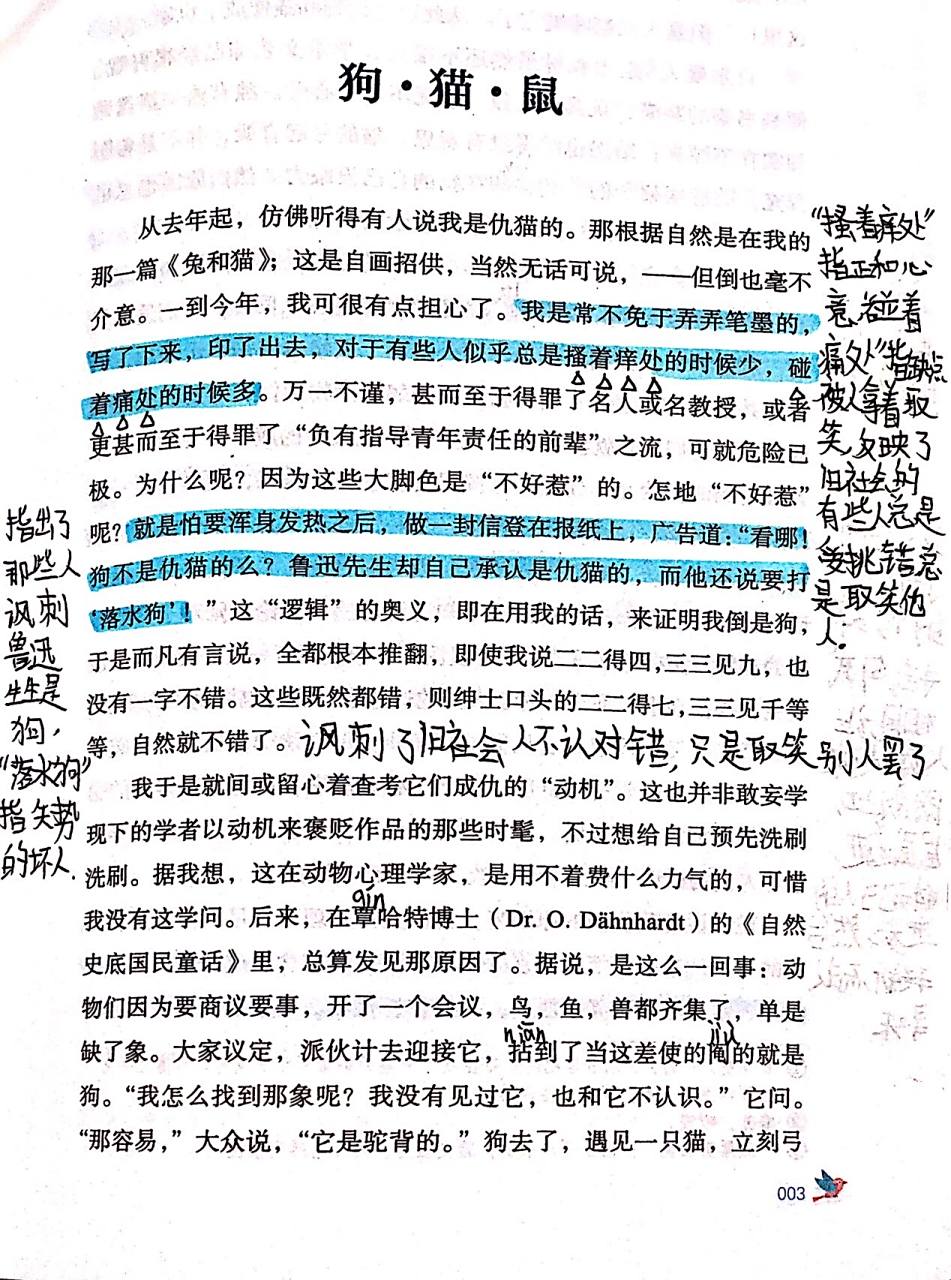 狗·猫·鼠
从去年起，仿佛听得有人说我是仇猫的。那根据自然是在我的
那一篇《兔和猫》；这是自画招供，当然无话可说，——但倒也毫不
介意。一到今年，我可很有点担心了。我是常不免于弄弄笔墨的，
写了下来，印了出去，对于有些人似乎总是搔着痒处的时候少，碰
着痛处的时候多。万一不谨，甚而至于得罪了名人或名教授，或者
更甚而至于得罪了“负有指导青年责任的前辈”之流，可就危险已
极。为什么呢？因为这些大脚色是“不好惹”的。怎地“不好惹”
呢？就是怕要浑身发热之后，做一封信登在报纸上，广告道：“看哪！
狗不是仇猫的么？鲁迅先生却自己承认是仇猫的，而他还说要打
‘落水狗’！”这“逻辑”的奥义，即在用我的话，来证明我倒是狗，
于是而凡有言说，全都根本推翻，即使我说二二得四，三三见九，也
没有一字不错。这些既然都错，则绅士口头的二二得七，三三见千等
等，自然就不错了。
讽刺了旧社会人不认对错，只是取笑别人罢了
我于是就间或留心着查考它们成仇的“动机”。这也并非敢妄学
现下的学者以动机来褒贬作品的那些时髦，不过想给自己预先洗刷
洗刷。据我想，这在动物心理学家，是用不着费什么力气的，可惜
qín
我没有这学问。后来，在覃哈特博士（Dr. O. Dähnhardt）的《自然
史底国民童话》里，总算发见那原因了。据说，是这么一回事：动
物们因为要商议要事，开了一个会议，鸟，鱼，兽都齐集了，单是
niān jiū
缺了象。大家议定，派伙计去迎接它，拈到了当这差使的阄的就是
狗。“我怎么找到那象呢？我没有见过它，也和它不认识。”它问。
“那容易，”大众说，“它是驼背的。”狗去了，遇见一只猫，立刻弓
003
“搔着痒处”
指正和心
意,“碰着
痛处”指缺点
被人拿着取
笑,反映了
旧社会的
有些人总是
要挑错总
是取笑他
人.
指出了
那些人
讽刺
鲁迅
先生是
狗，
“落水狗”
指失势
的坏人.